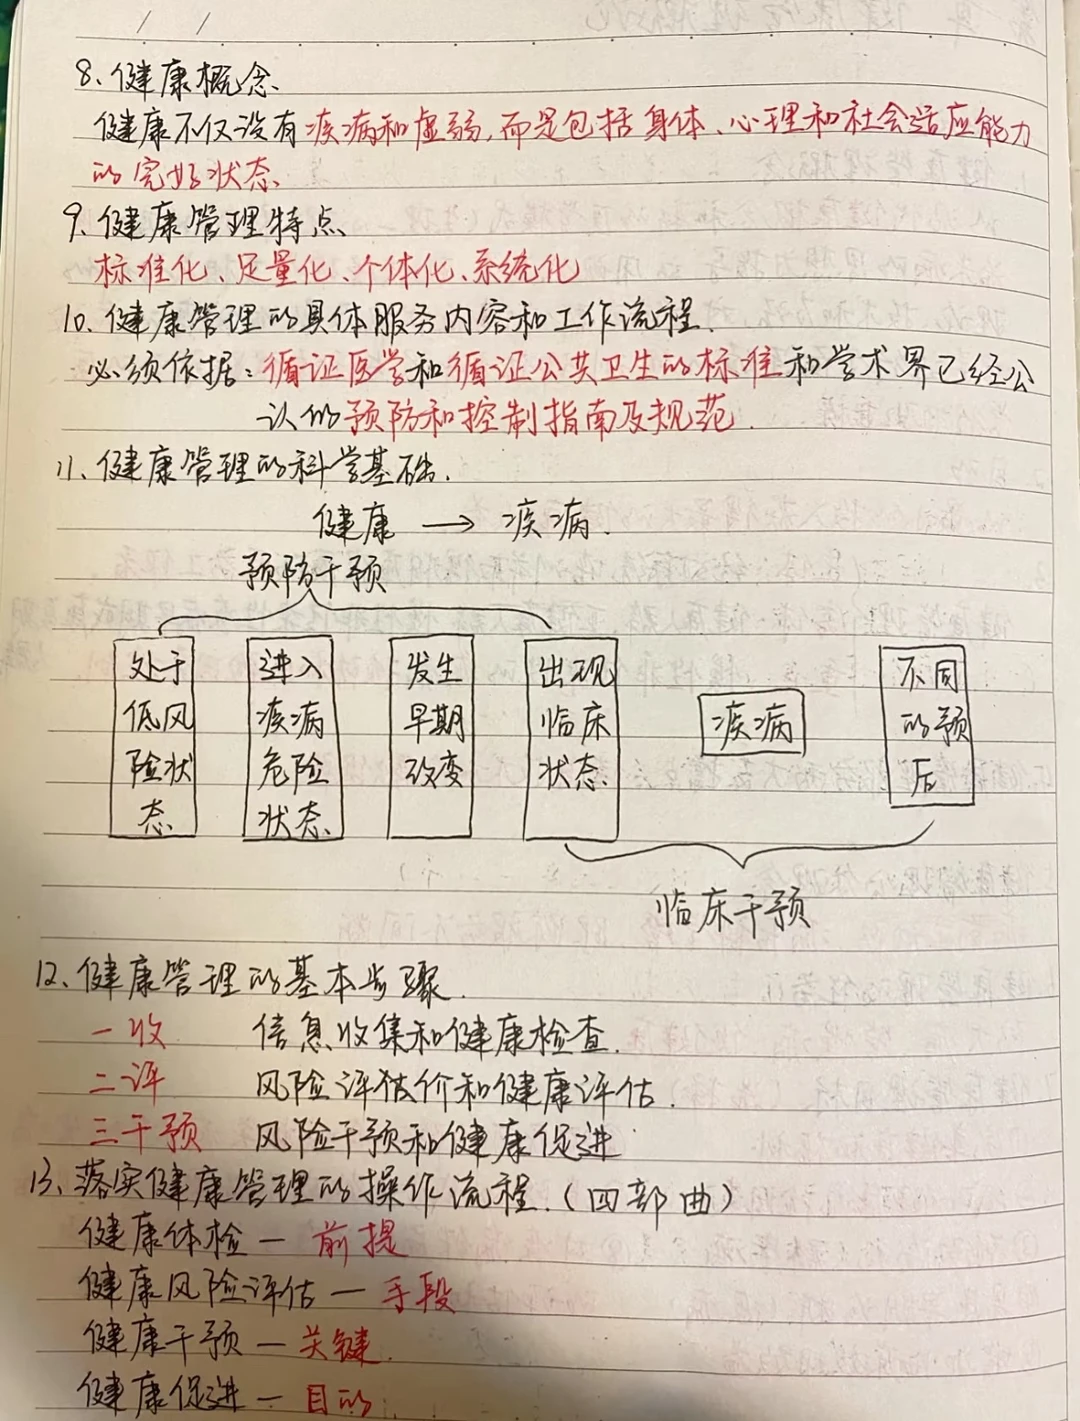 8、健康概念
健康不仅没有疾病和虚弱,而是包括身体、心理和社会适应能力
的完好状态
9、健康管理特点
标准化、足量化、个体化、系统化
10、健康管理的具体服务内容和工作流程.
必须依据:循证医学和循证公共卫生的标准和学术界已经公
认的预防和控制指南及规范.
11、健康管理的科学基础.
健康 → 疾病.
预防干预
处于
低风
险状
态
进入
疾病
危险
状态
发生
早期
改变
出现
临床
状态
疾病
不同
的预
后
临床干预
12、健康管理的基本步骤.
一收 信息收集和健康检查.
二评 风险评估价和健康评估.
三干预 风险干预和健康促进
13、落实健康管理的操作流程.(四部曲)
健康体检—前提
健康风险评估—手段
健康干预—关键.
健康促进—目的